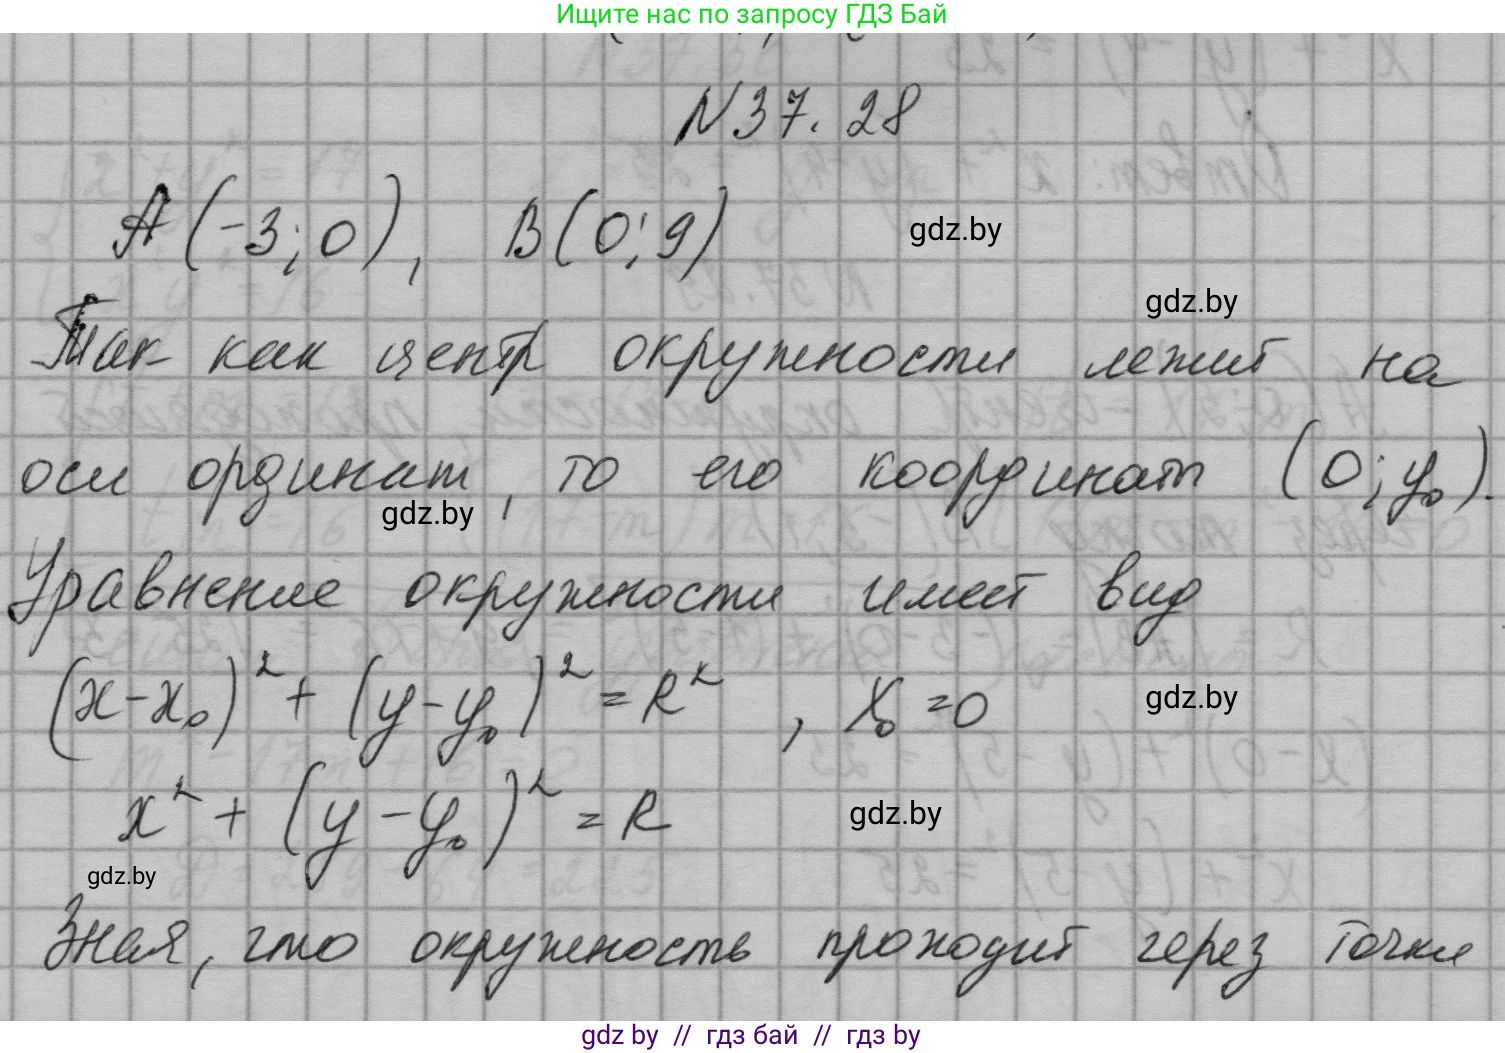 Ищите нас по запросу ГДЗ Бай
N 37.28
A(-3;0), B(0;9)
gdz.by
gdz.by
Так как центр окружности лежит на
оси ординат, то его координаты (0; y₀).
gdz.by
Уравнение окружности имеет вид
(x-x₀)² + (y-y₀)² = R², x₀ = 0
gdz.by
x² + (y-y₀)² = R
gdz.by
gdz.by
Зная, что окружность проходит через точки
gdz by // гдз бай // гдз by